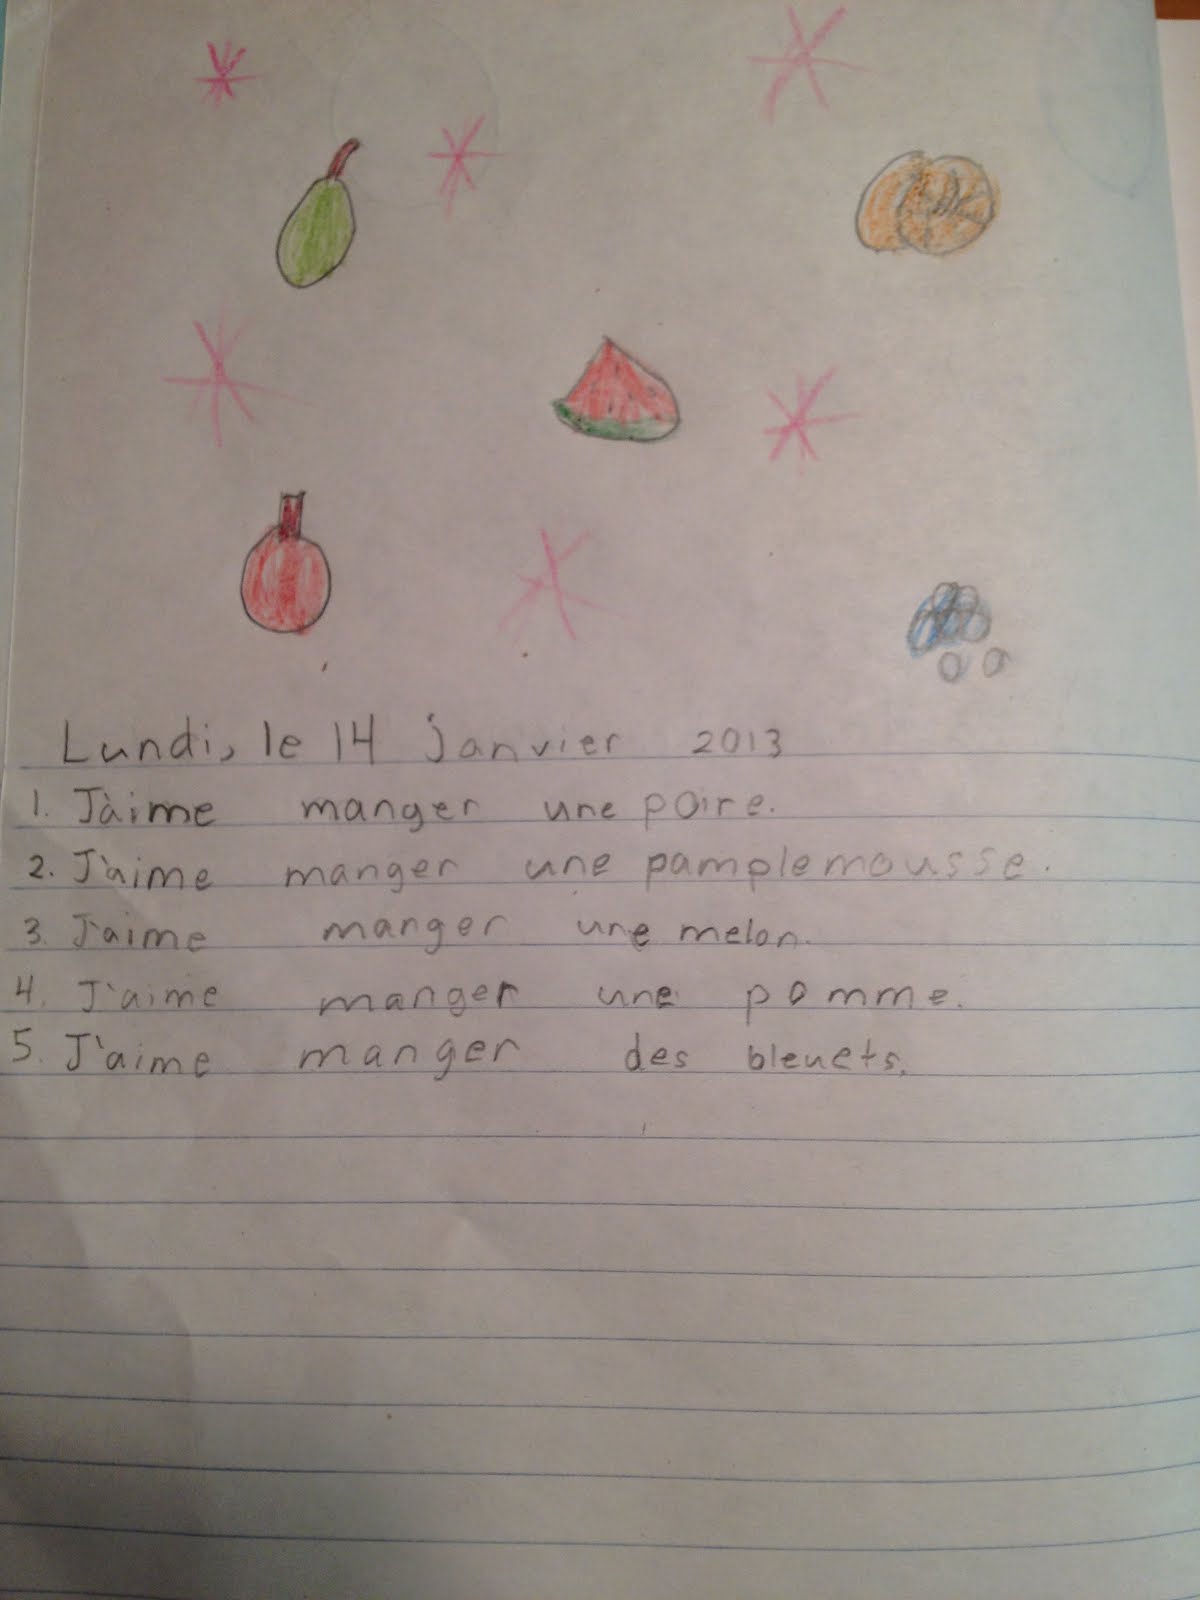 Lundi, le 14 janvier 2013
1. J'aime manger une poire.
2. J'aime manger une pamplemousse.
3. J'aime manger une melon.
4. J'aime manger une pomme.
5. J'aime manger des bleuets.